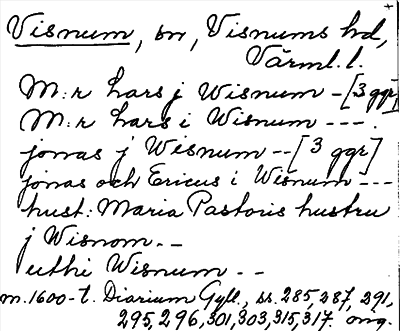 Visnum, sn, Visnums hd,
Värml. l.
M:r hars j Wisnum - [3 ggr]
M:r hars i Wisnum ---
jonas j Wisnum -- [3 ggr]
jonas och Ericus i Wisnum ---
hust: Maria Pastoris hustru
j Wisnom --
uthi Wisnum --
m. 1600-t. Diarium Gyll., ss. 285, 287, 291,
295, 296, 301, 303, 315, 317. orig.